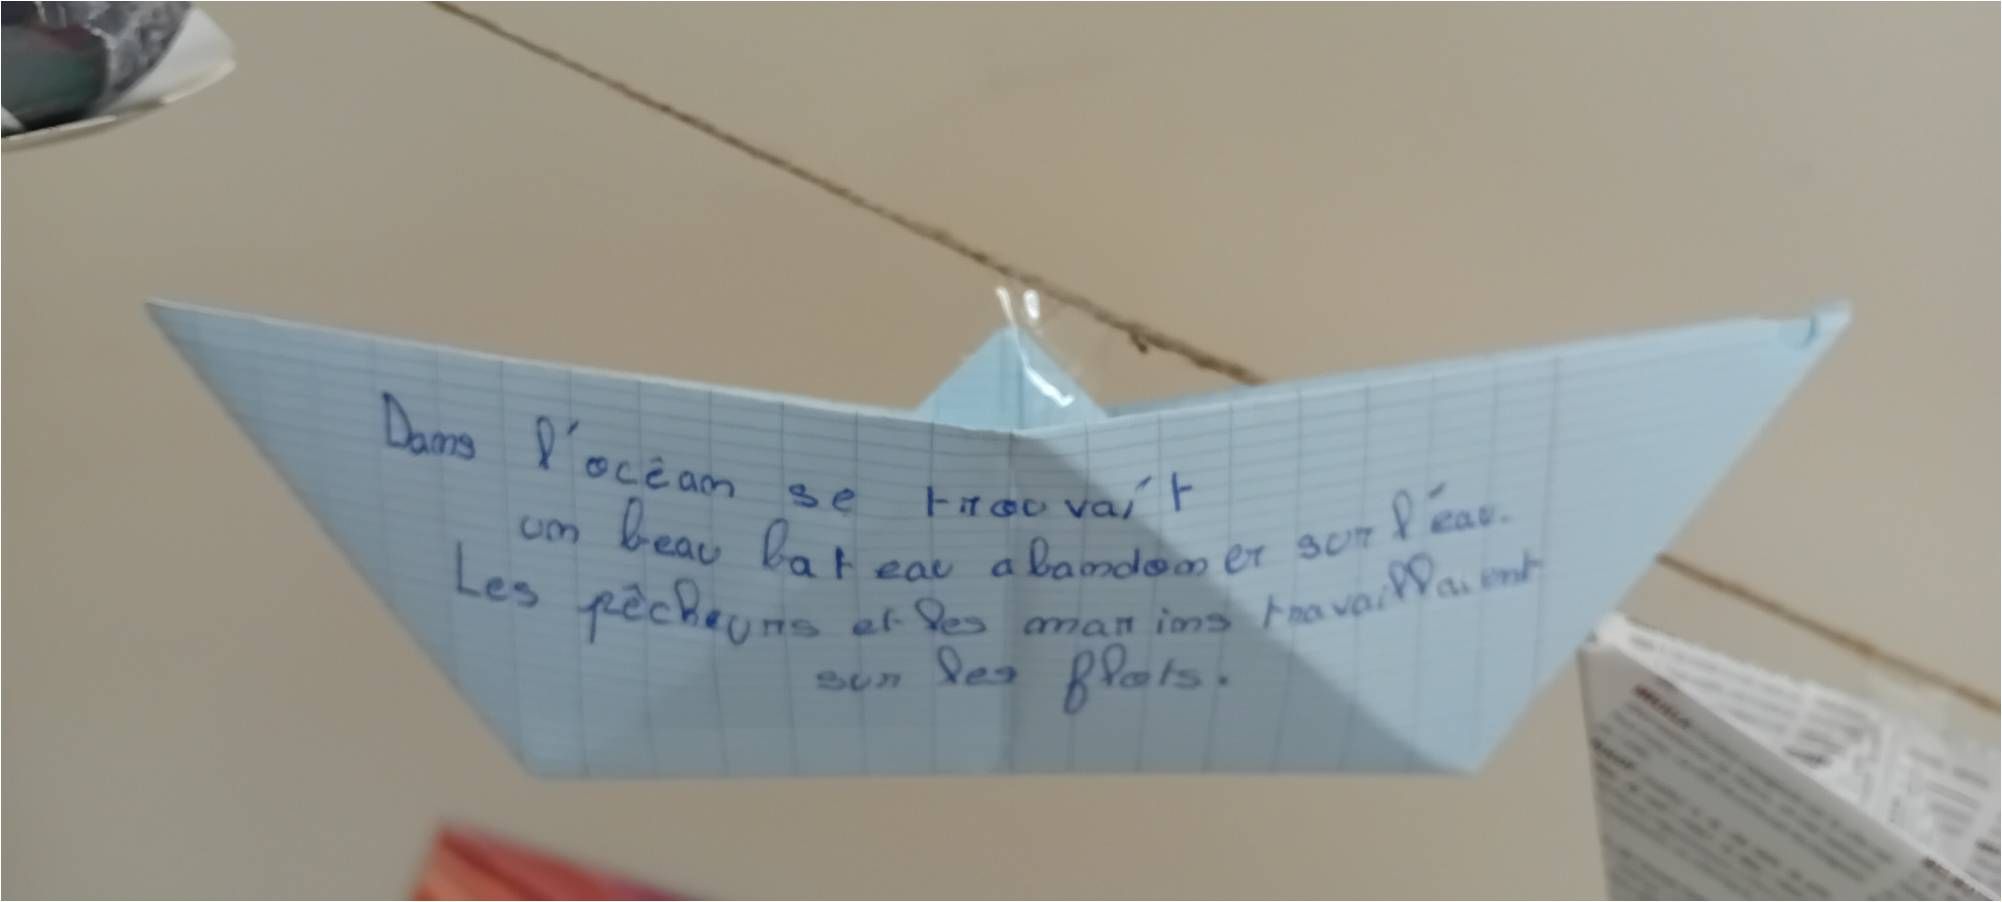 Dans l'océan se trouvait
un beau bateau abandonner sur l'eau.
Les pêcheurs et les marins travaillaient
sur les flots.